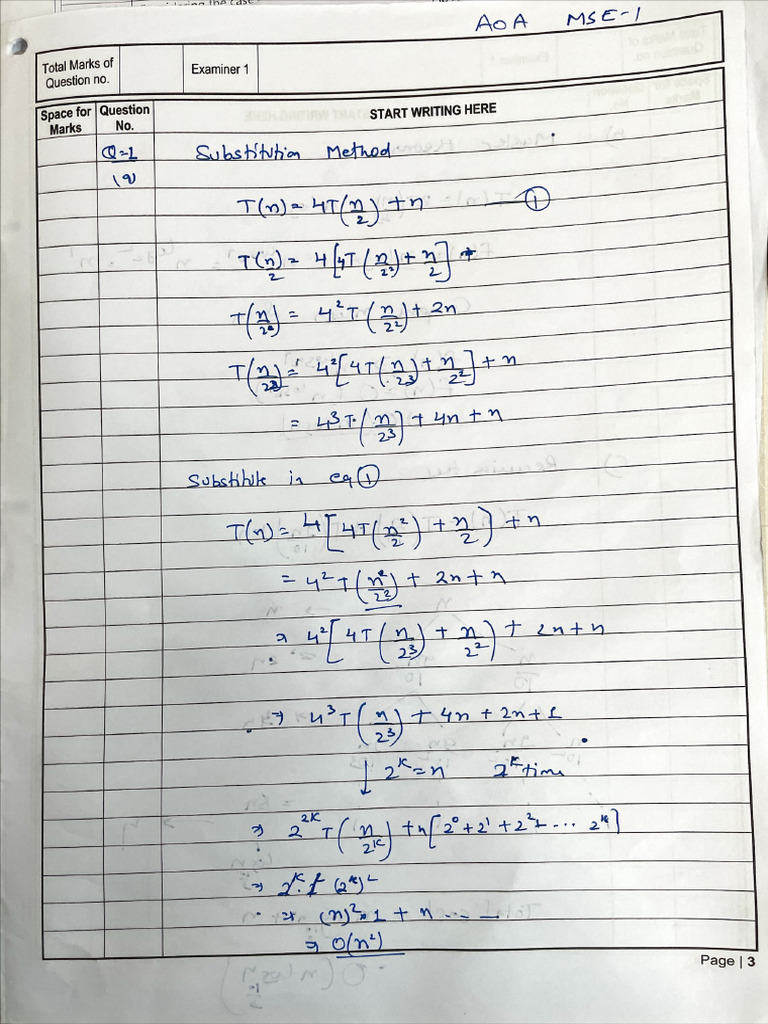 AOA MSE-1
Total Marks of Question no.
Examiner 1
Space for Marks
Question No.
START WRITING HERE
Q-1 Substitution Method
T(n) = 4T(n/2) + n — ①
T(n/2) = 4[4T(n/2²) + n/2] +
T(n/2²) = 4²T(n/2²) + 2n
T(n/2³) = 4²[4T(n/2³) + n/2²] + n
= 4³T(n/2³) + 4n + n
Substitute in eq ①
T(n) = 4[4T(n²/2) + n/2] + n
= 4²T(n²/2²) + 2n + n
⇒ 4²[4T(n/2³) + n/2²] + 2n + n
⇒ 4³T(n/2³) + 4n + 2n + 1
↓ 2ᴷ = n 2ᴷ time
⇒ 2²ᴷ T(n/2ᴷ) + n[2⁰ + 2¹ + 2² + ... 2ᴷ]
⇒ (2ᴷ)²
⇒ (n)².1 + n ... —
⇒ O(n²)
Page | 3